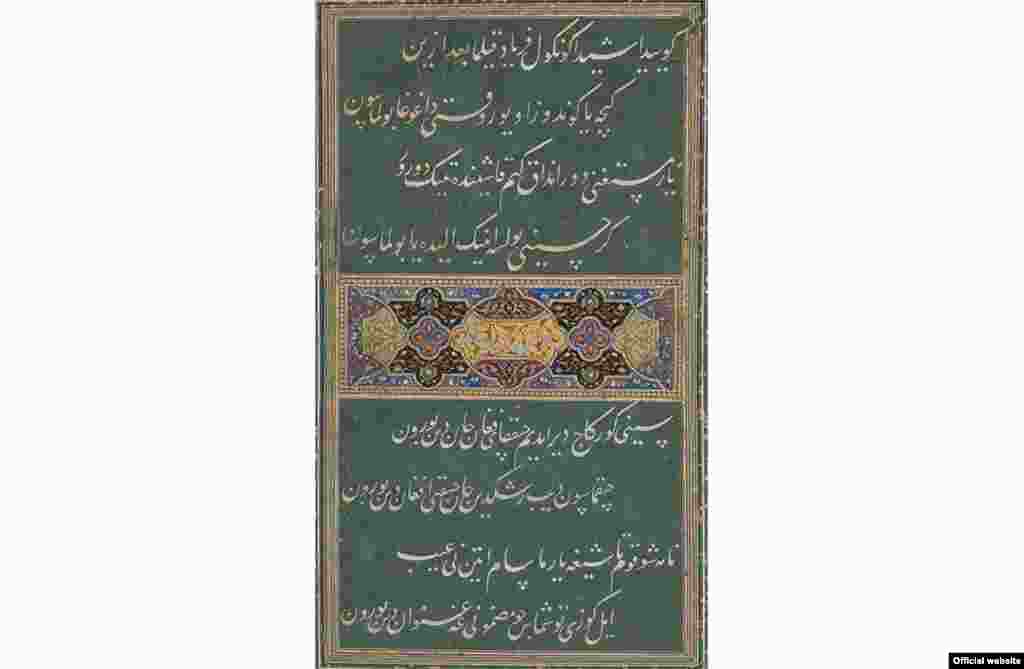 کویدا شیدا کونکول فریاد قیلما بعد ازین
کیچه یا کوندوز اویور وقتی دا غوغا بولماسون
یار مستغنی دور انداق کیم قاشینده تینک دورور
کر حسینی بولسه نینک الیده یا بولماسون
کورکاچ دیر ایدیم چیققای فغان جان دین بورون
چیقماسون دیب رشکیدین جان چیقتی افغان دین بورون
نامه شوقوم قاشیغه یارماسام ایتین نی عیب
ایل کوزی توشماس مضمونی غه عنوان دین بورون
Official website